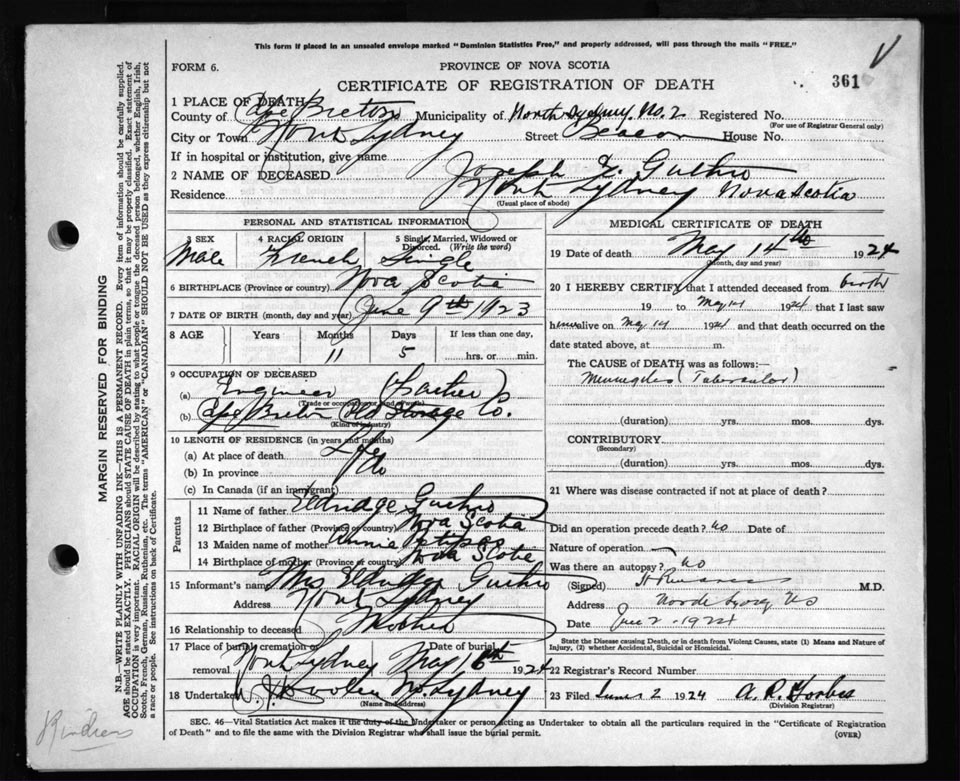 This form if placed in an unsealed envelope marked "Dominion Statistics Free," and properly addressed, will pass through the mails "FREE."
FORM 6.
PROVINCE OF NOVA SCOTIA
CERTIFICATE OF REGISTRATION OF DEATH
361
1 PLACE OF DEATH
County of Cape Breton Municipality of North Sydney No. 2 Registered No.
(For use of Registrar General only)
City or Town North Sydney Street Beacon House No.
If in hospital or institution, give name
2 NAME OF DECEASED Joseph Guthro
Residence North Sydney Nova Scotia
(Usual place of abode)
PERSONAL AND STATISTICAL INFORMATION
3 SEX 4 RACIAL ORIGIN 5 Single, Married, Widowed or Divorced. (Write the word)
Male French Single
6 BIRTHPLACE (Province or country) Nova Scotia
7 DATE OF BIRTH (month, day and year) June 9th 1923
8 AGE Years Months Days If less than one day,
11 5 hrs. or min.
9 OCCUPATION OF DECEASED
(a) Engineer (Father)
(Trade or occupation and kind)
(b) Cape Breton Cold Storage Co.
(Kind of industry)
10 LENGTH OF RESIDENCE (in years and months)
(a) At place of death Life
(b) In province do
(c) In Canada (if an immigrant)
Parents
11 Name of father Eldridge Guthro
12 Birthplace of father (Province or country) Nova Scotia
13 Maiden name of mother Annie
14 Birthplace of mother (Province or country) Nova Scotia
15 Informant's name Mrs Eldridge Guthro
Address North Sydney
16 Relationship to deceased Mother
17 Place of burial, cremation or removal North Sydney Date of burial May 16th 1924
18 Undertaker W. J. Dooley N. Sydney
(Name and address)
MEDICAL CERTIFICATE OF DEATH
19 Date of death May 14th 1924
(Month, day and year)
20 I HEREBY CERTIFY that I attended deceased from birth
19 to May 14 1924 that I last saw
him alive on May 14 1924 and that death occurred on the
date stated above, at m.
The CAUSE of DEATH was as follows:—
Meningitis (Tubercular)
(duration) yrs. mos. dys.
CONTRIBUTORY
(Secondary)
(duration) yrs. mos. dys.
21 Where was disease contracted if not at place of death?
Did an operation precede death? No Date of
Nature of operation
Was there an autopsy? No
(Signed) M.D.
Address North Sydney NS
Date June 2 1924
State the Disease causing Death, or in death from Violent Causes, state (1) Means and Nature of Injury, (2) whether Accidental, Suicidal or Homicidal.
22 Registrar's Record Number
23 Filed June 2 1924 A. R. Forbes
(Division Registrar)
SEC. 46—Vital Statistics Act makes it the duty of the Undertaker or person acting as Undertaker to obtain all the particulars required in the "Certificate of Registration
of Death" and to file the same with the Division Registrar who shall issue the burial permit.
(OVER)
MARGIN RESERVED FOR BINDING
N.B.—WRITE PLAINLY WITH UNFADING INK—THIS IS A PERMANENT RECORD. Every item of information should be carefully supplied.
AGE should be stated EXACTLY. PHYSICIANS should STATE CAUSE OF DEATH in plain terms, so that it may be properly classified. Exact statement of
OCCUPATION is very important. RACIAL ORIGIN will be described by stating to what people or tongue the deceased person belonged, whether English, Irish,
Scotch, French, German, Russian, Ruthenian, etc. The terms "AMERICAN" or "CANADIAN" SHOULD NOT BE USED as they express citizenship but not
a race or people. See instructions on back of Certificate.